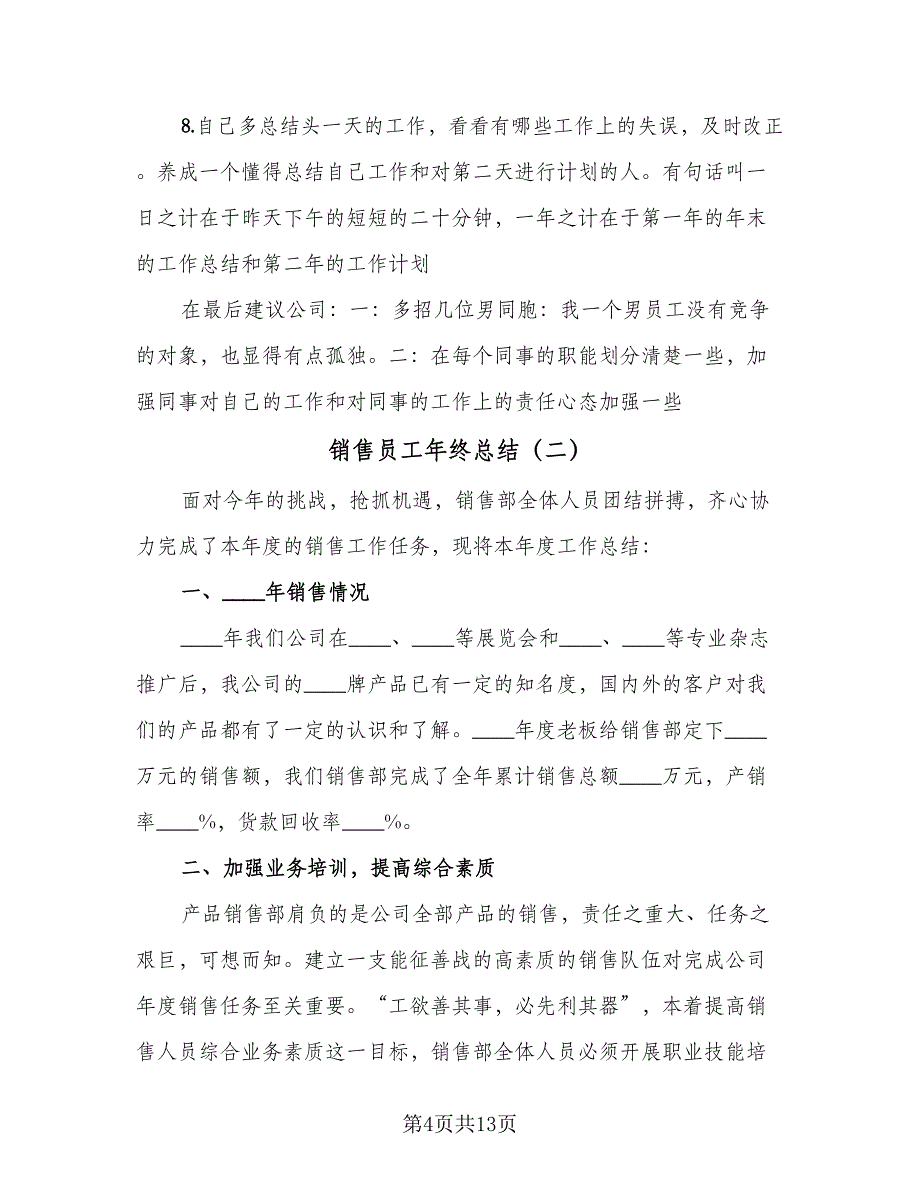 8.自己多总结头一天的工作，看看有哪些工作上的失误，及时改正
。养成一个懂得总结自己工作和对第二天进行计划的人。有句话叫一
日之计在于昨天下午的短短的二十分钟，一年之计在于第一年的年末
的工作总结和第二年的工作计划
在最后建议公司：一：多招几位男同胞：我一个男员工没有竞争
的对象，也显得有点孤独。二：在每个同事的职能划分清楚一些，加
强同事对自己的工作和对同事的工作上的责任心态加强一些
销售员工年终总结（二）
面对今年的挑战，抢抓机遇，销售部全体人员团结拼搏，齐心协
力完成了本年度的销售工作任务，现将本年度工作总结：
一、____年销售情况
____年我们公司在____、____等展览会和____、____等专业杂志
推广后，我公司的____牌产品已有一定的知名度，国内外的客户对我
们的产品都有了一定的认识和了解。____年度老板给销售部定下____
万元的销售额，我们销售部完成了全年累计销售总额____万元，产销
率____%，货款回收率____%。
二、加强业务培训，提高综合素质
产品销售部肩负的是公司全部产品的销售，责任之重大、任务之
艰巨，可想而知。建立一支能征善战的高素质的销售队伍对完成公司
年度销售任务至关重要。“工欲善其事，必先利其器”，本着提高销
售人员综合业务素质这一目标，销售部全体人员必须开展职业技能培
第4页共13页